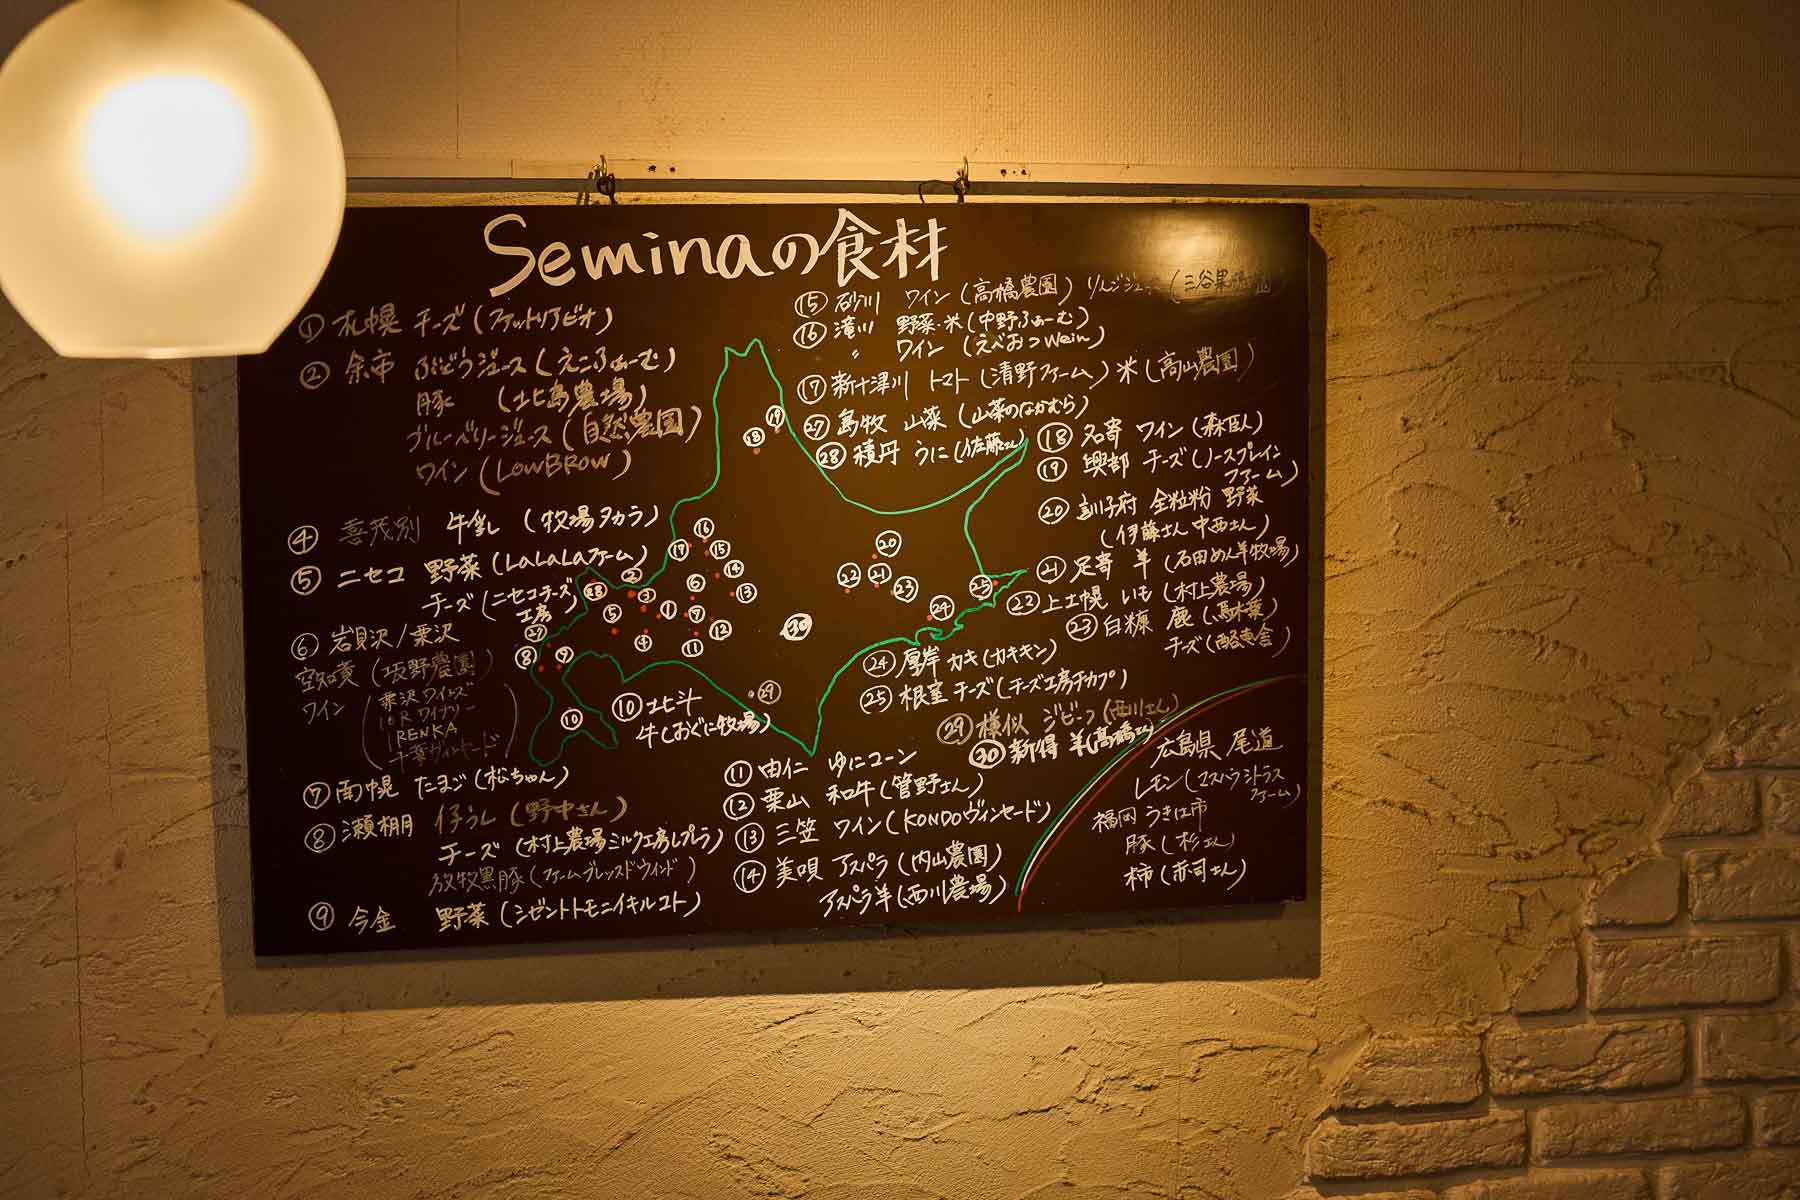 Seminaの食材
① 札幌 チーズ (ファットリアビオ)
② 余市 ぶどうジュース (えこふぁーむ)
豚 (北島農場)
ブルーベリージュース (自然農園)
ワイン (LOWBROW)
④ 喜茂別 牛乳 (牧場タカラ)
⑤ ニセコ 野菜 (LaLaLaファーム)
チーズ (ニセコチーズ
工房)
⑥ 岩見沢/栗沢
空知黄 (坂野農園)
ワイン (栗沢ワインズ
10Rワイナリー
RENKA
千葉ヴィンヤード)
⑦ 南幌 たまご (松ちゃん)
⑧ 瀬棚 仔うし (野中さん)
チーズ (村上農場ミルク工房レプラ)
放牧黒豚 (ファームブレッスドウィンド)
⑨ 今金 野菜 (シゼントトモニイキルコト)
⑩ 北斗
牛 (おぐに牧場)
⑪ 由仁 ゆにコーン
⑫ 栗山 和牛 (菅野さん)
⑬ 三笠 ワイン (KONDOヴィンヤード)
⑭ 美唄 アスパラ (内山農園)
アスパラ羊 (西川農場)
⑮ 砂川 ワイン (高橋農園) りんごジュース (三谷果樹園)
⑯ 滝川 野菜・米 (中野ふぁーむ)
〃 ワイン (えべおつWein)
⑰ 新十津川 トマト (清野ファーム) 米 (高山農園)
㉗ 島牧 山菜 (山菜のなかむら)
㉘ 積丹 うに (佐藤さん)
⑱ 名寄 ワイン (森臥)
⑲ 興部 チーズ (ノースプレイン
ファーム)
⑳ 訓子府 全粒粉 野菜
(伊藤さん 中西さん)
㉑ 足寄 羊 (石田めん羊牧場)
㉒ 上士幌 いも (村上農場)
㉓ 白糠 鹿 (馬木葉)
チーズ (酪恵舎)
㉔ 厚岸 カキ (カキキン)
㉕ 根室 チーズ (チーズ工房チカプ)
㉙ 様似 ジビーフ (西川さん)
㉚ 新得 羊 (高橋さん)
広島県 尾道
レモン (マスハラシトラス
ファーム)
福岡 うきは市
豚 (杉さん)
柿 (赤司さん)
⑲
⑱
⑯
⑰ ⑮
⑭
⑬
㉘ ② ⑥
③ ① ⑦
⑤ ⑫
④ ⑪
㉗
⑧ ⑨
⑩
⑳
㉒ ㉑ ㉓
㉔ ㉕
㉚
㉙